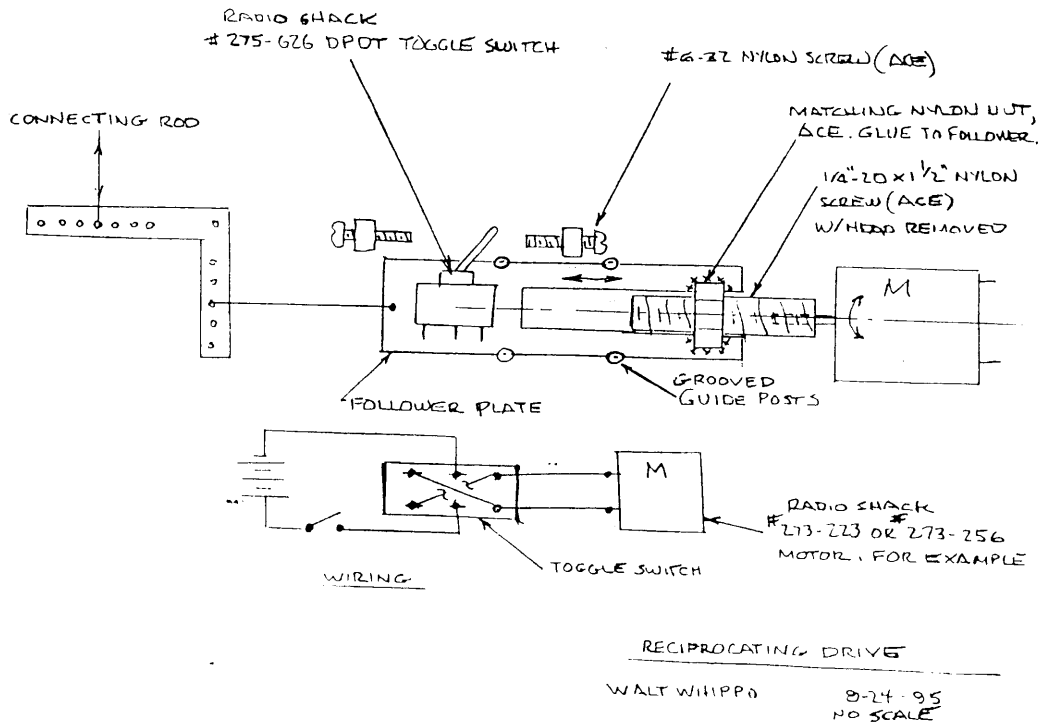 RADIO SHACK
# 275-626 DPDT TOGGLE SWITCH
#6-32 NYLON SCREW (ACE)
CONNECTING ROD
MATCHING NYLON NUT,
ACE. GLUE TO FOLLOWER.
1/4"-20 x 1 1/2" NYLON
SCREW (ACE)
W/HEAD REMOVED
M
GROOVED
GUIDE POSTS
FOLLOWER PLATE
M
RADIO SHACK
#273-223 OR #273-256
MOTOR, FOR EXAMPLE
TOGGLE SWITCH
WIRING
RECIPROCATING DRIVE
WALT WHIPPO
-24-95
NO SCALE